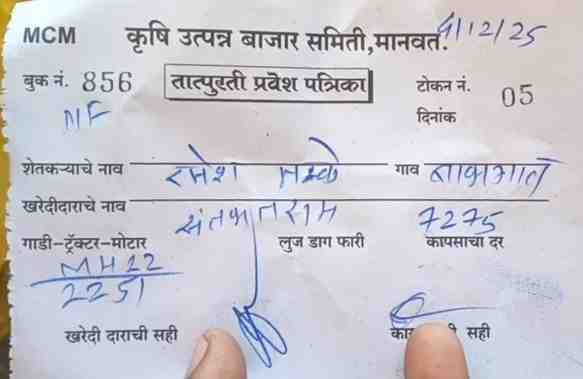 MCM कृषि उत्पन्न बाजार समिती,मानवत. 9/12/25
बुक नं. 856 तात्पुरती प्रवेश पत्रिका टोकन नं. 05
NF दिनांक
शेतकऱ्याचे नाव रमेश गाव
खरेदीदाराचे नाव
7275
गाडी-ट्रॅक्टर-मोटार लुज डाग फारी कापसाचा दर
MH22
2251
खरेदी दाराची सही सही